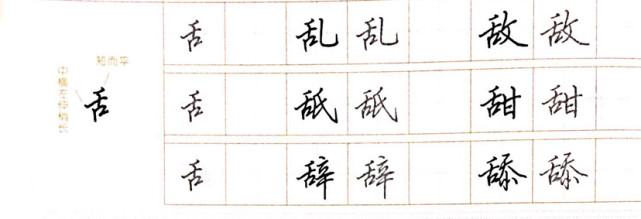 短而平
中横左伸稍长
舌
舌 乱 乱 敌 敌
舌 舐 舐 甜 甜
舌 辞 辞 舔 舔